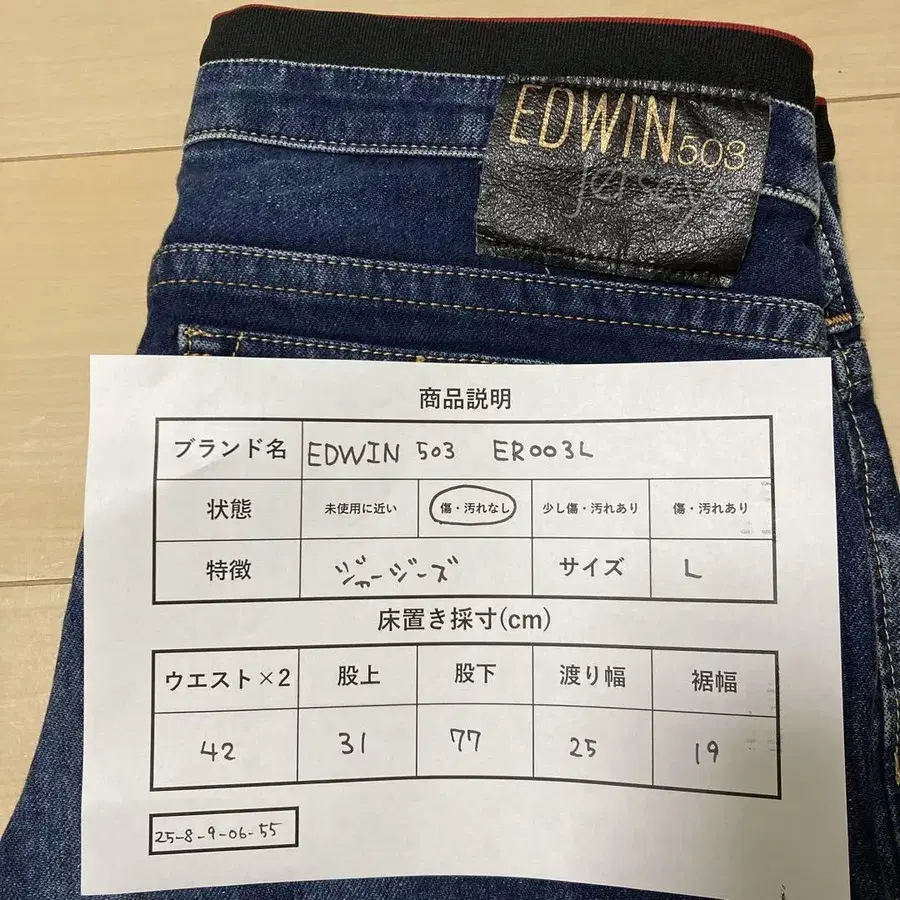 EDWIN 503
Jerseys
商品説明
ブランド名 EDWIN 503 ER003L
状態 未使用に近い 傷・汚れなし 少し傷・汚れあり 傷・汚れあり
特徴 ジャージーズ サイズ L
床置き採寸(cm)
ウエスト×2 股上 股下 渡り幅 裾幅
42 31 77 25 19
25-8-9-06-55